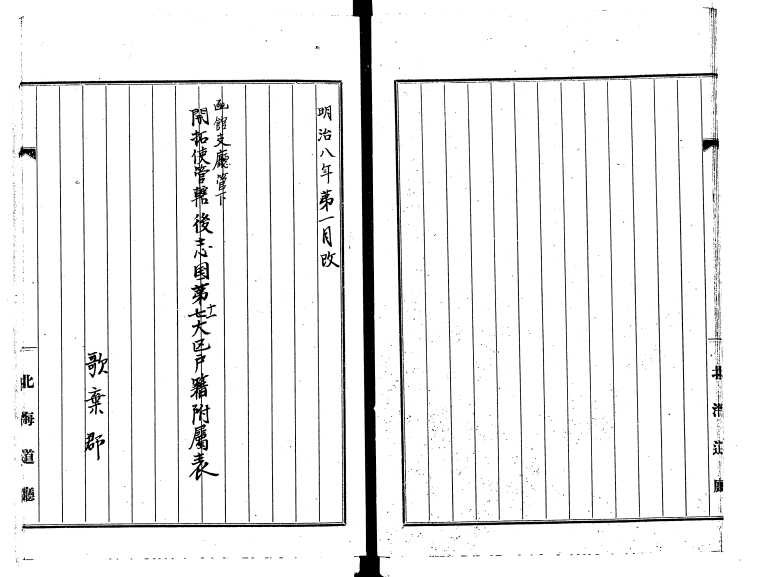 明治八年第一月改
函館支廳管下
開拓使管轄後志国第七大区戸籍附属表
十一
歌棄郡
北海道廳
北海道廳